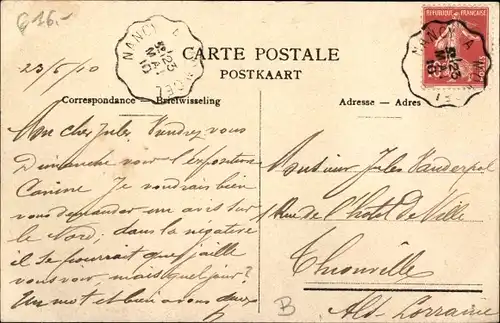 G 16.-
23/5/10
NANCY A
23
MAI
10
CARTE POSTALE
POSTKAART
RÉPUBLIQUE FRANÇAISE
POSTES
NANCY A
23
MAI
10
Correspondance — Briefwisseling
Adresse — Adres
Mon cher Jules Viendrez vous
Dimanche voir l'exposition
Canine Je voudrais bien
vous demander un avis sur
le Nord; dans la négative
il se pourrait que j'aille
vous voir mais quel jour?
Un mot et bien à vous deux
Monsieur Jules Vanderpol
1 Rue de l'hôtel de Ville
Thionville
Als- Lorraine
B